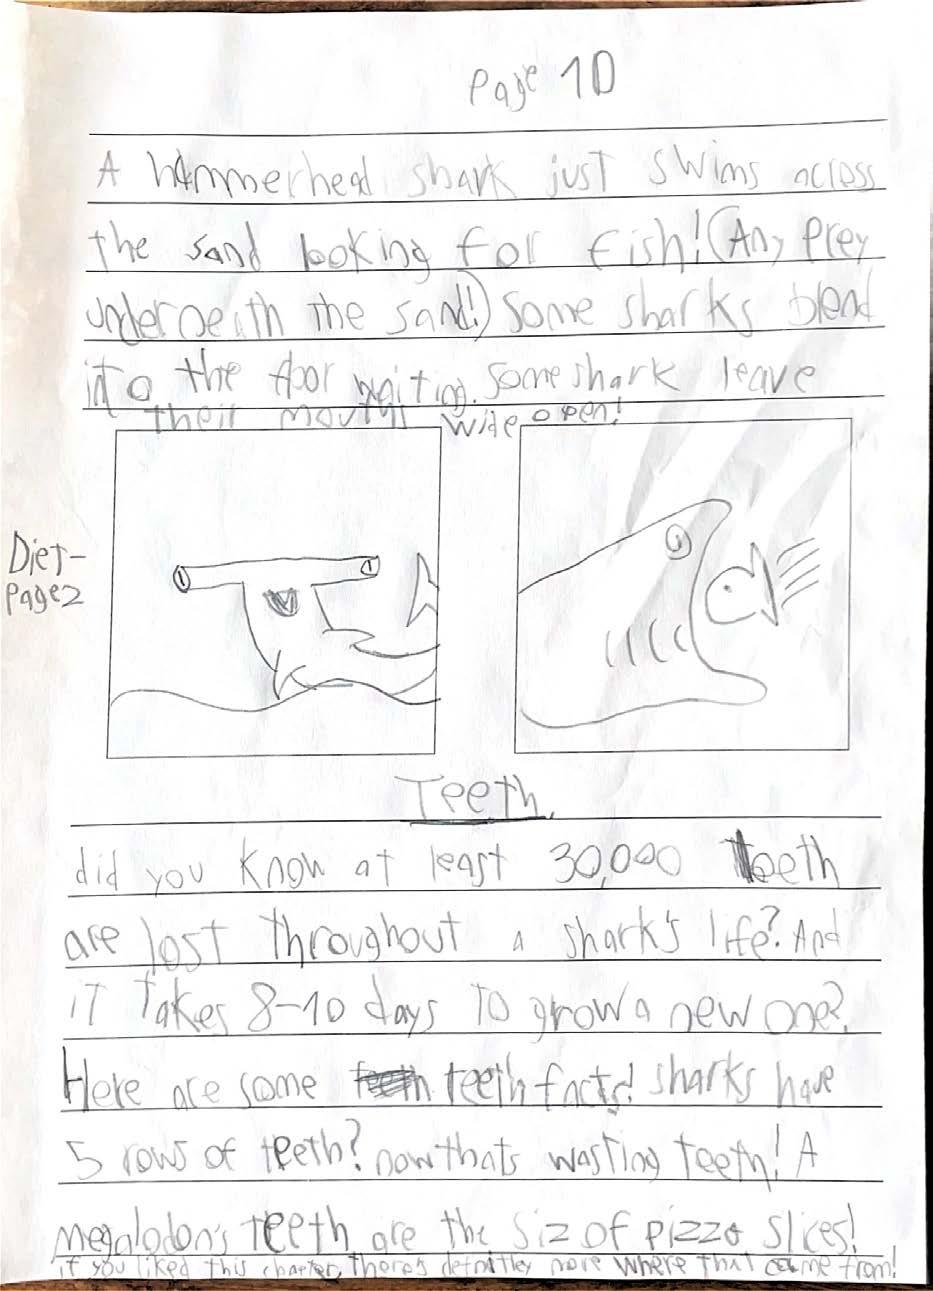 Page 10
A hammerhead shark just swims across
the sand looking for fish! (Any Prey
underneath the sand!) Some sharks blend
into the floor waiting. Some shark leave
their mouths wide open!
Diet-
Page 2
Teeth.
did you know at least 30,000 teeth
are lost throughout a shark's life? And
it takes 8-10 days to grow a new one?
Here are some teeth facts! sharks have
5 rows of teeth? now thats wasting teeth! A
megalodon's teeth are the siz of pizza slices!
if you liked this chapter, there's definitley more where that came from!